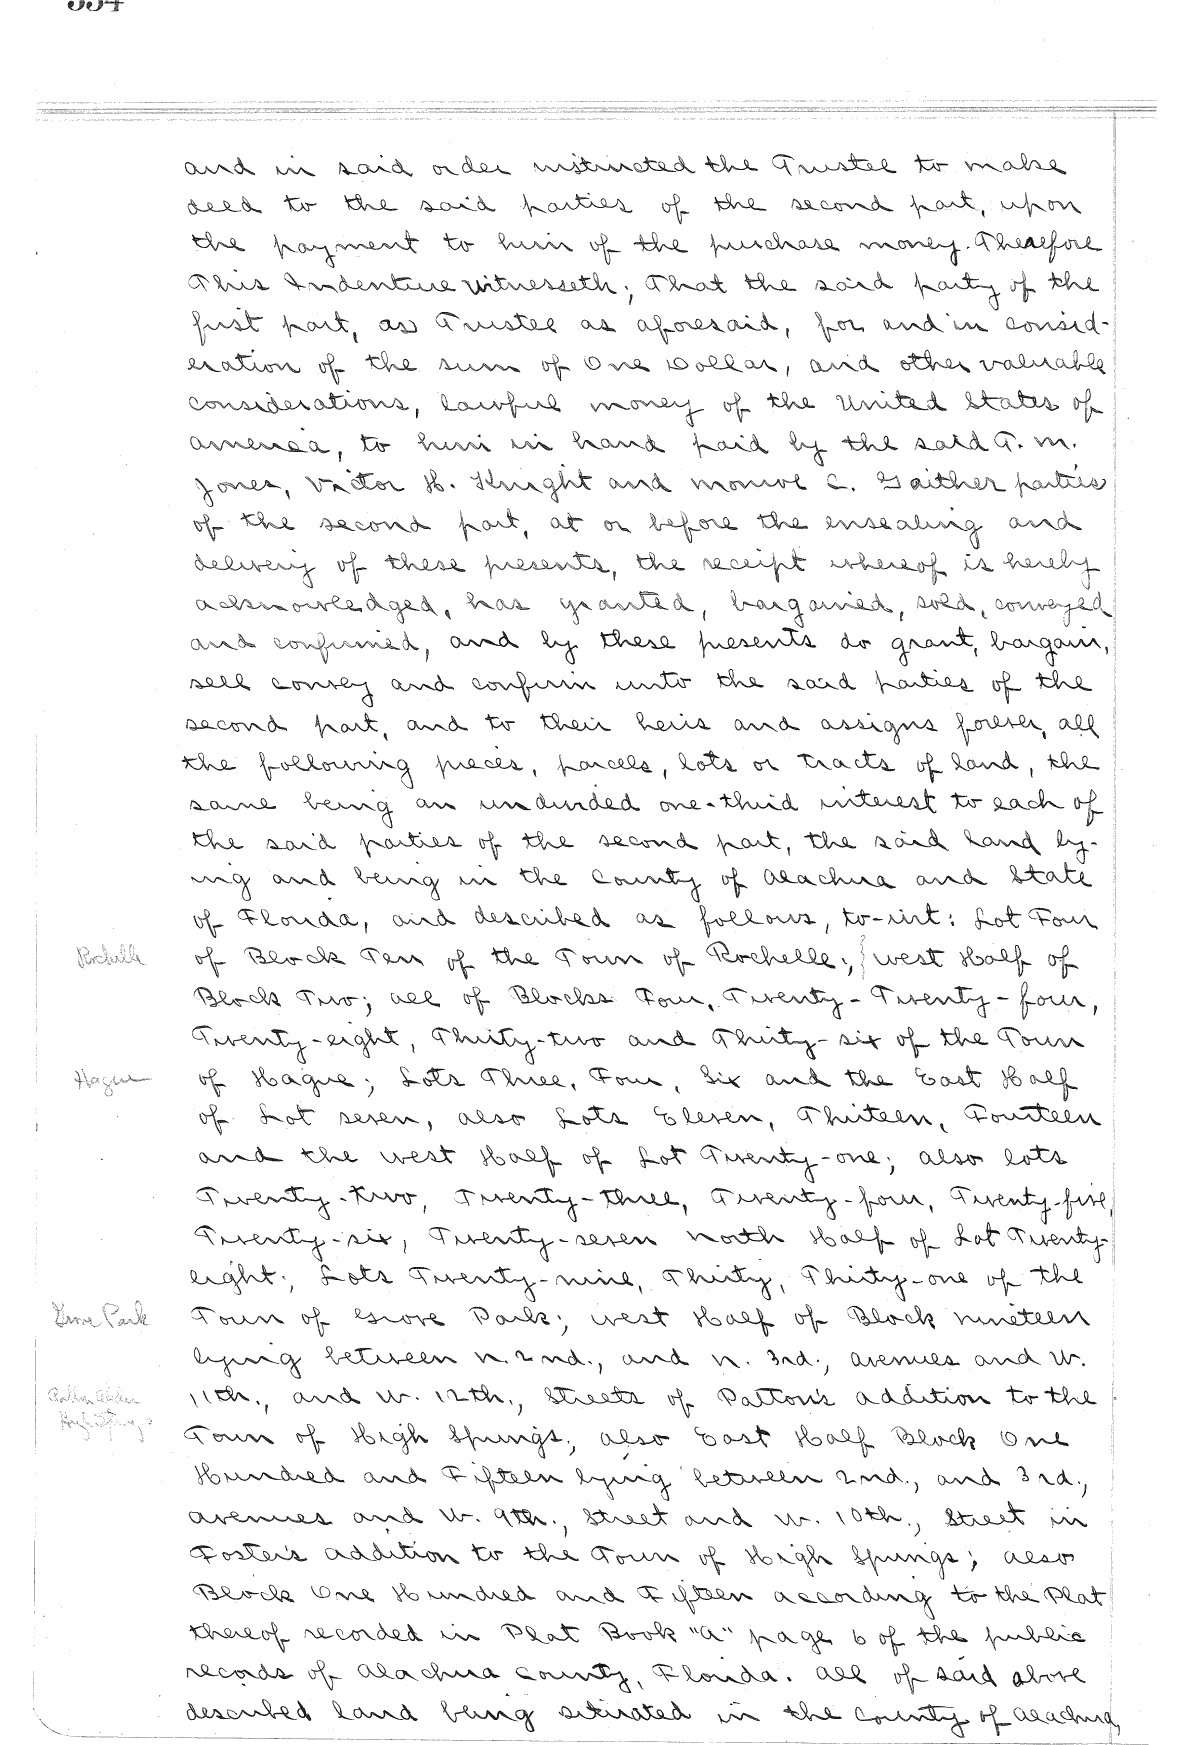 334
and in said order instructed the Trustee to make
deed to the said parties of the second part, upon
the payment to him of the purchase money. Therefore
This Indenture witnesseth; That the said party of the
first part, as Trustee as aforesaid, for and in consid-
eration of the sum of One Dollar, and other valuable
considerations, lawful money of the United States of
america, to him in hand paid by the said T. M.
Jones, Victor H. Knight and Monroe C. Gaither parties
of the second part, at or before the ensealing and
delivery of these presents, the receipt whereof is hereby
acknowledged, has granted, bargained, sold, conveyed
and confirmed, and by these presents do grant, bargain,
sell convey and confirm unto the said parties of the
second part, and to their heirs and assigns forever, all
the following pieces, parcels, lots or tracts of land, the
same being an undivided one-third interest to each of
the said parties of the second part, the said land ly-
ing and being in the County of Alachua and State
of Florida, and described as follows, to-wit: Lot Four
Rochelle of Block Ten of the Town of Rochelle; west Half of
Block Two; all of Blocks Four, Twenty- Twenty-four,
Twenty-eight, Thirty-two and Thirty-six of the Town
Hague of Hague; Lots Three, Four, Six and the East Half
of Lot seven, also Lots Eleven, Thirteen, Fourteen
and the west Half of Lot Twenty-one; also lots
Twenty-two, Twenty-three, Twenty-four, Twenty-five,
Twenty-six, Twenty-seven north Half of Lot Twenty-
eight; Lots Twenty-nine, Thirty, Thirty-one of the
Grove Park Town of Grove Park; west Half of Block nineteen
lying between n. 2nd., and n. 3rd., avenues and W.
11th., and W. 12th., Streets of Patton's addition to the
High Springs Town of High Springs; also East Half Block One
Hundred and Fifteen lying between 2nd., and 3rd.,
avenues and W. 9th., Street and W. 10th., Street in
Foster's addition to the Town of High Springs; also
Block One Hundred and Fifteen according to the Plat
thereof recorded in Plat Book "A" page 6 of the public
records of Alachua County, Florida. All of said above
described land being situated in the County of Alachua,